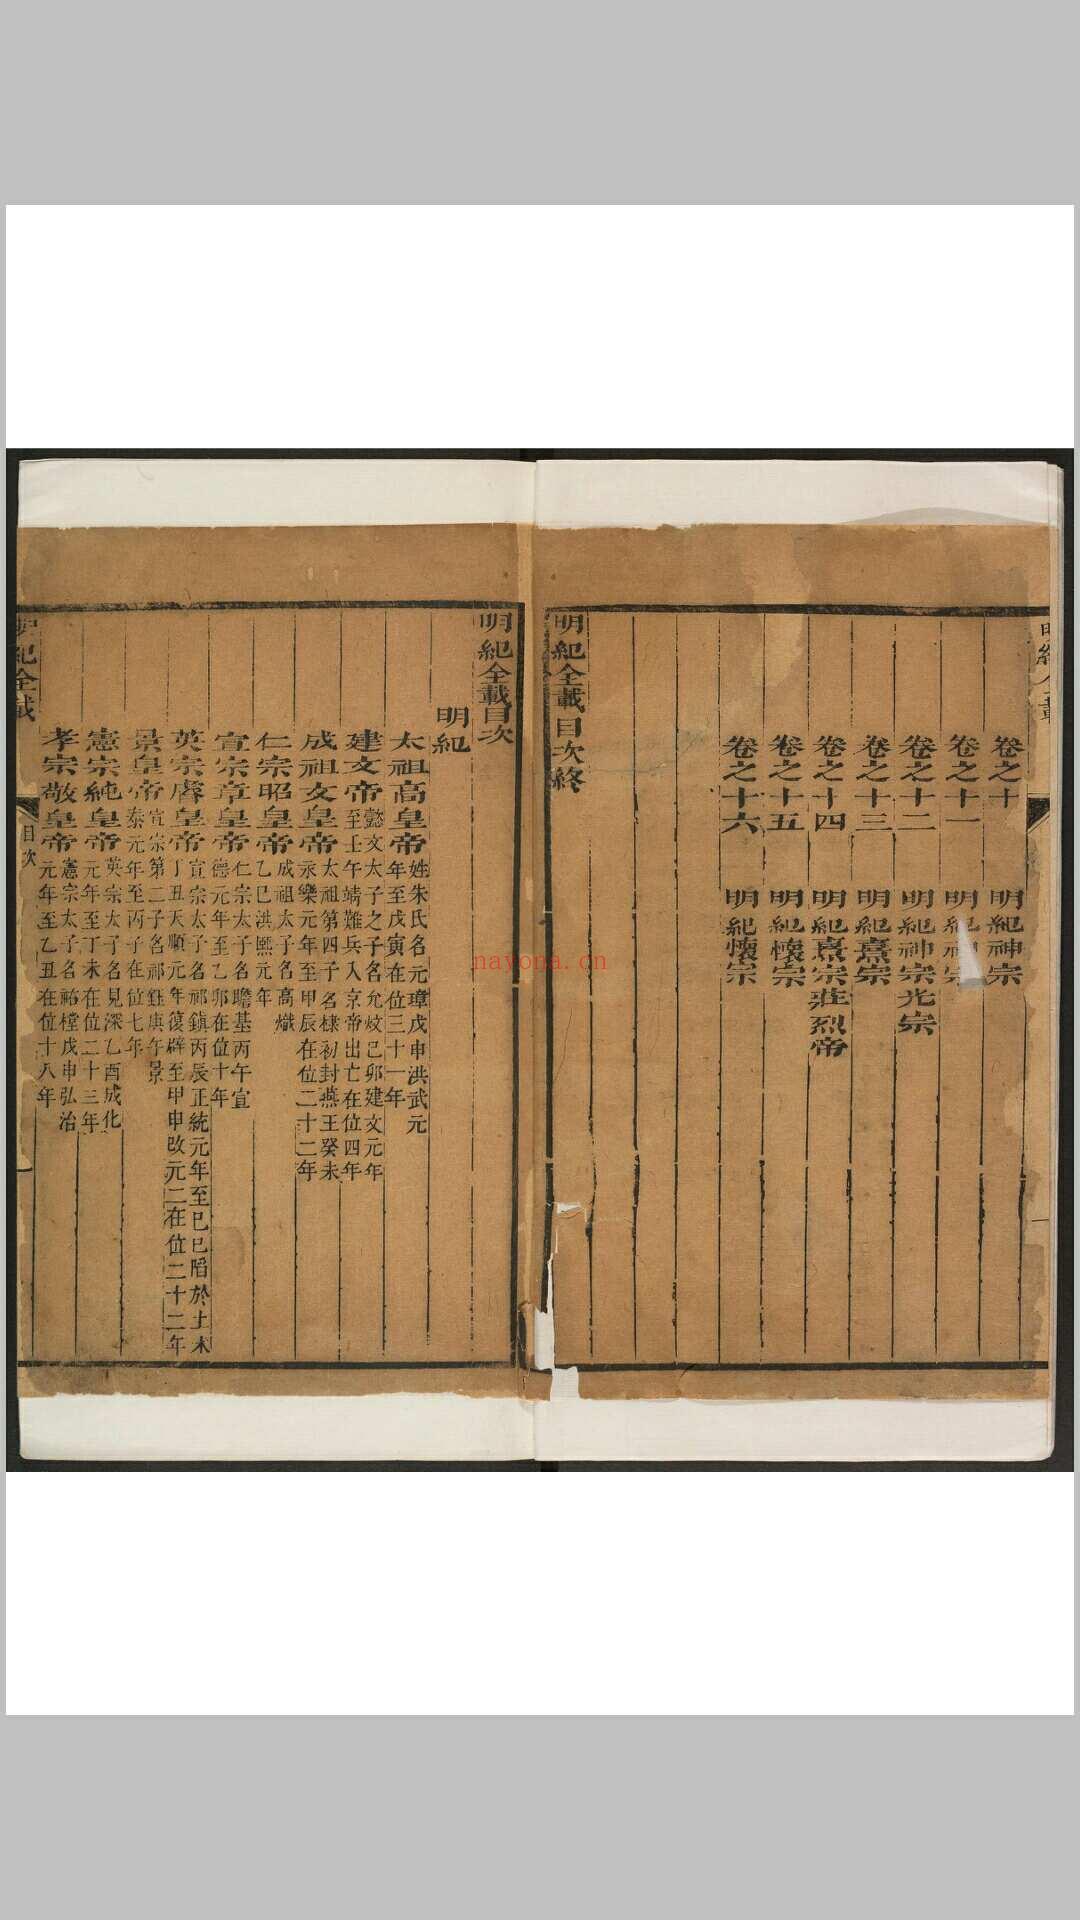 卷之十 明紀神宗
卷之十一 明紀神宗
卷之十二 明紀神宗光宗
卷之十三 明紀熹宗
卷之十四 明紀熹宗莊烈帝
卷之十五 明紀懷宗
卷之十六 明紀懷宗
明紀全載目次終
明紀全載目次
明紀
太祖高皇帝 姓朱氏名元璋戊申洪武元
年至戊寅在位三十一年
建文帝 懿文太子之子名允炆己卯建文元年
至壬午靖難兵入京帝出亡在位四年
成祖文皇帝 太祖第四子名棣初封燕王癸未
永樂元年至甲辰在位二十二年
仁宗昭皇帝 成祖太子名高熾
乙巳洪熙元年
宣宗章皇帝 仁宗太子名瞻基丙午宣
德元年至乙卯在位十年
英宗睿皇帝 宣宗太子名祁鎮丙辰正統元年至己巳陷於土木
丁丑天順元年復辟至甲申改元二在位二十二年
景皇帝 宣宗第二子名祁鈺庚午景
泰元年至丙子在位七年
憲宗純皇帝 英宗太子名見深乙酉成化
元年至丁未在位二十三年
孝宗敬皇帝 憲宗太子名祐樘戊申弘治
元年至乙丑在位十八年
明紀全載 目次
nayona.cn